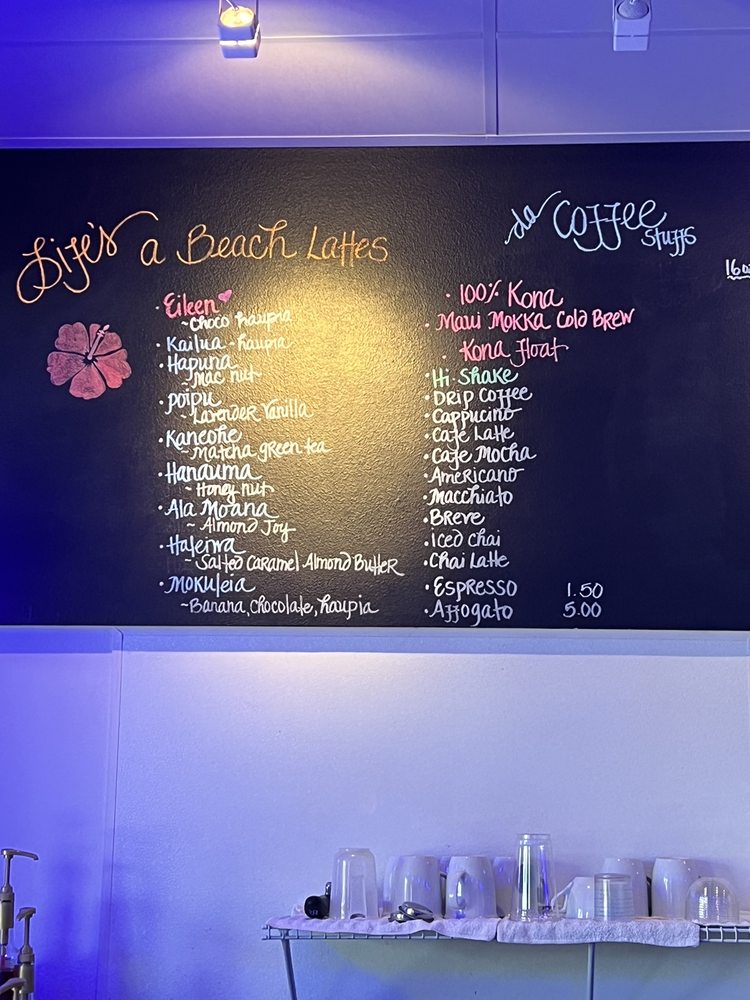 Life's a Beach Lattes
· Eileen
~Choco haupia
· Kailua - haupia
· Hapuna
~Mac nut
· Poipu
~Lavender Vanilla
· Kaneohe
~Matcha green tea
· Hanauma
~Honey nut
· Ala Moana
~Almond Joy
· Haleiwa
~Salted Caramel Almond Butter
· Mokuleia
~Banana, Chocolate, haupia
da Coffee Stuffs
· 100% Kona
· Maui Mokka Cold Brew
· Kona float
· Hi Shake
· Drip Coffee
· Cappucino
· Cafe Latte
· Cafe Mocha
· Americano
· Macchiato
· Breve
· Iced Chai
· Chai Latte
· Espresso 1.50
· Affogato 5.00